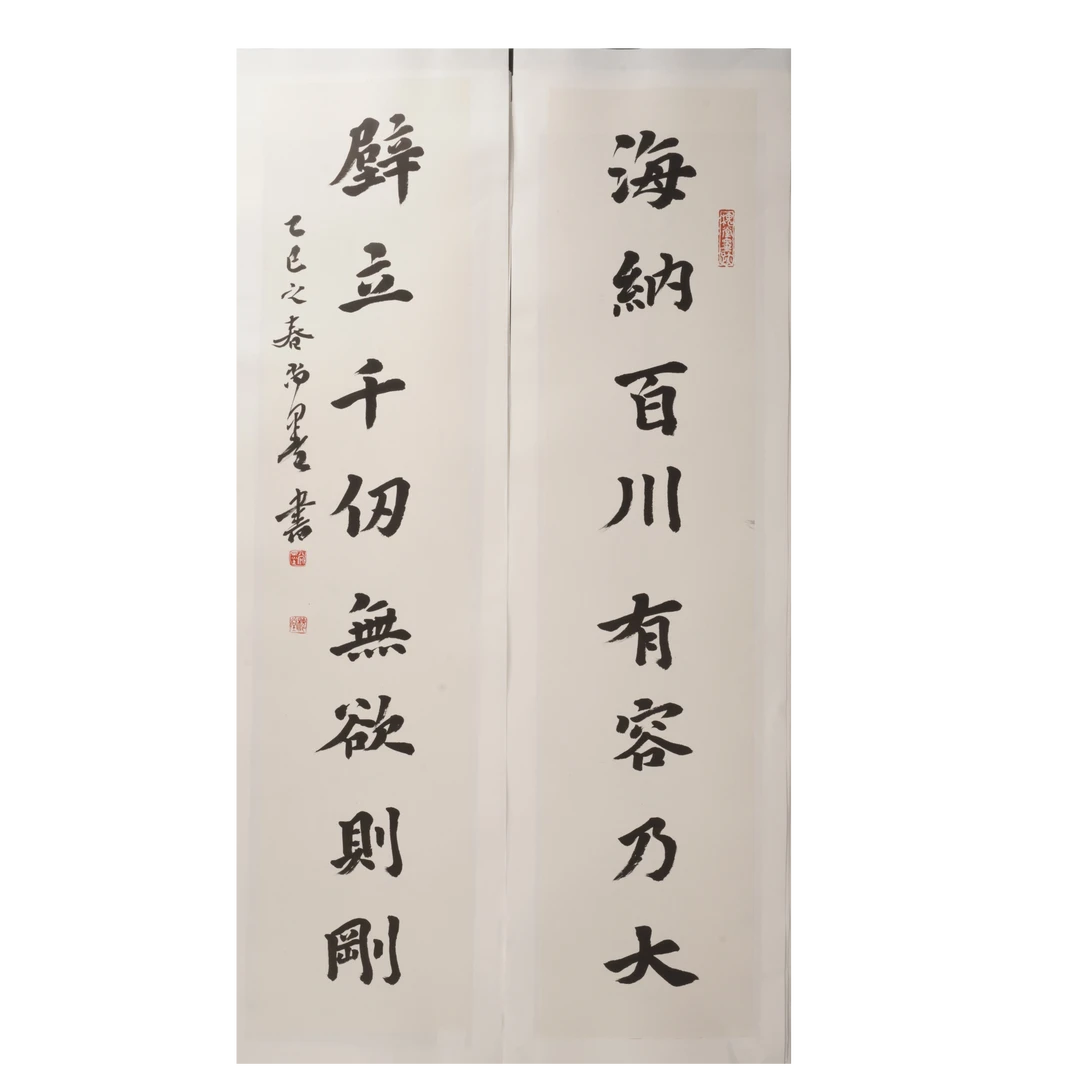 海納百川有容乃大
壁立千仞無欲則剛
乙巳之春尚墨書